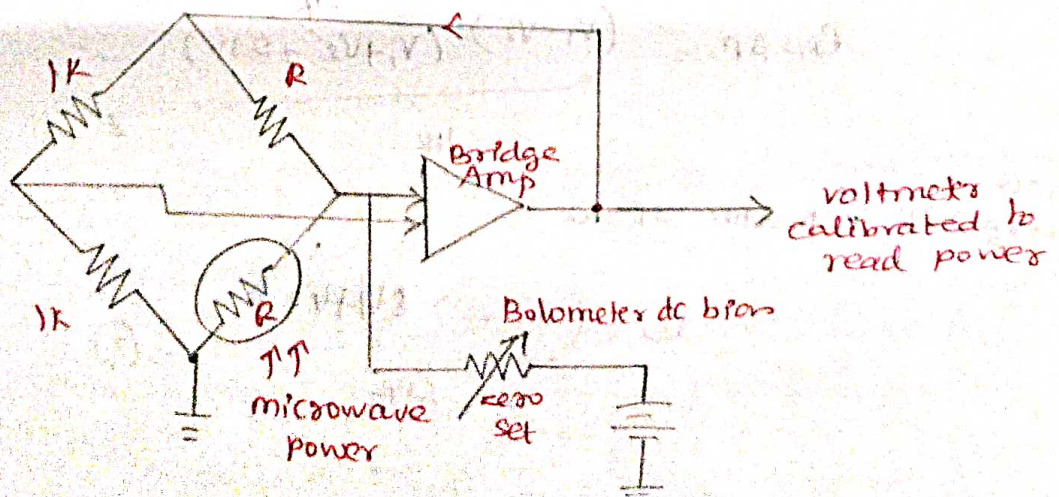 1K
R
Bridge
Amp
voltmeter
calibrated to
read power
1K
R
Bolometer dc bias
microwave
power
zero
set